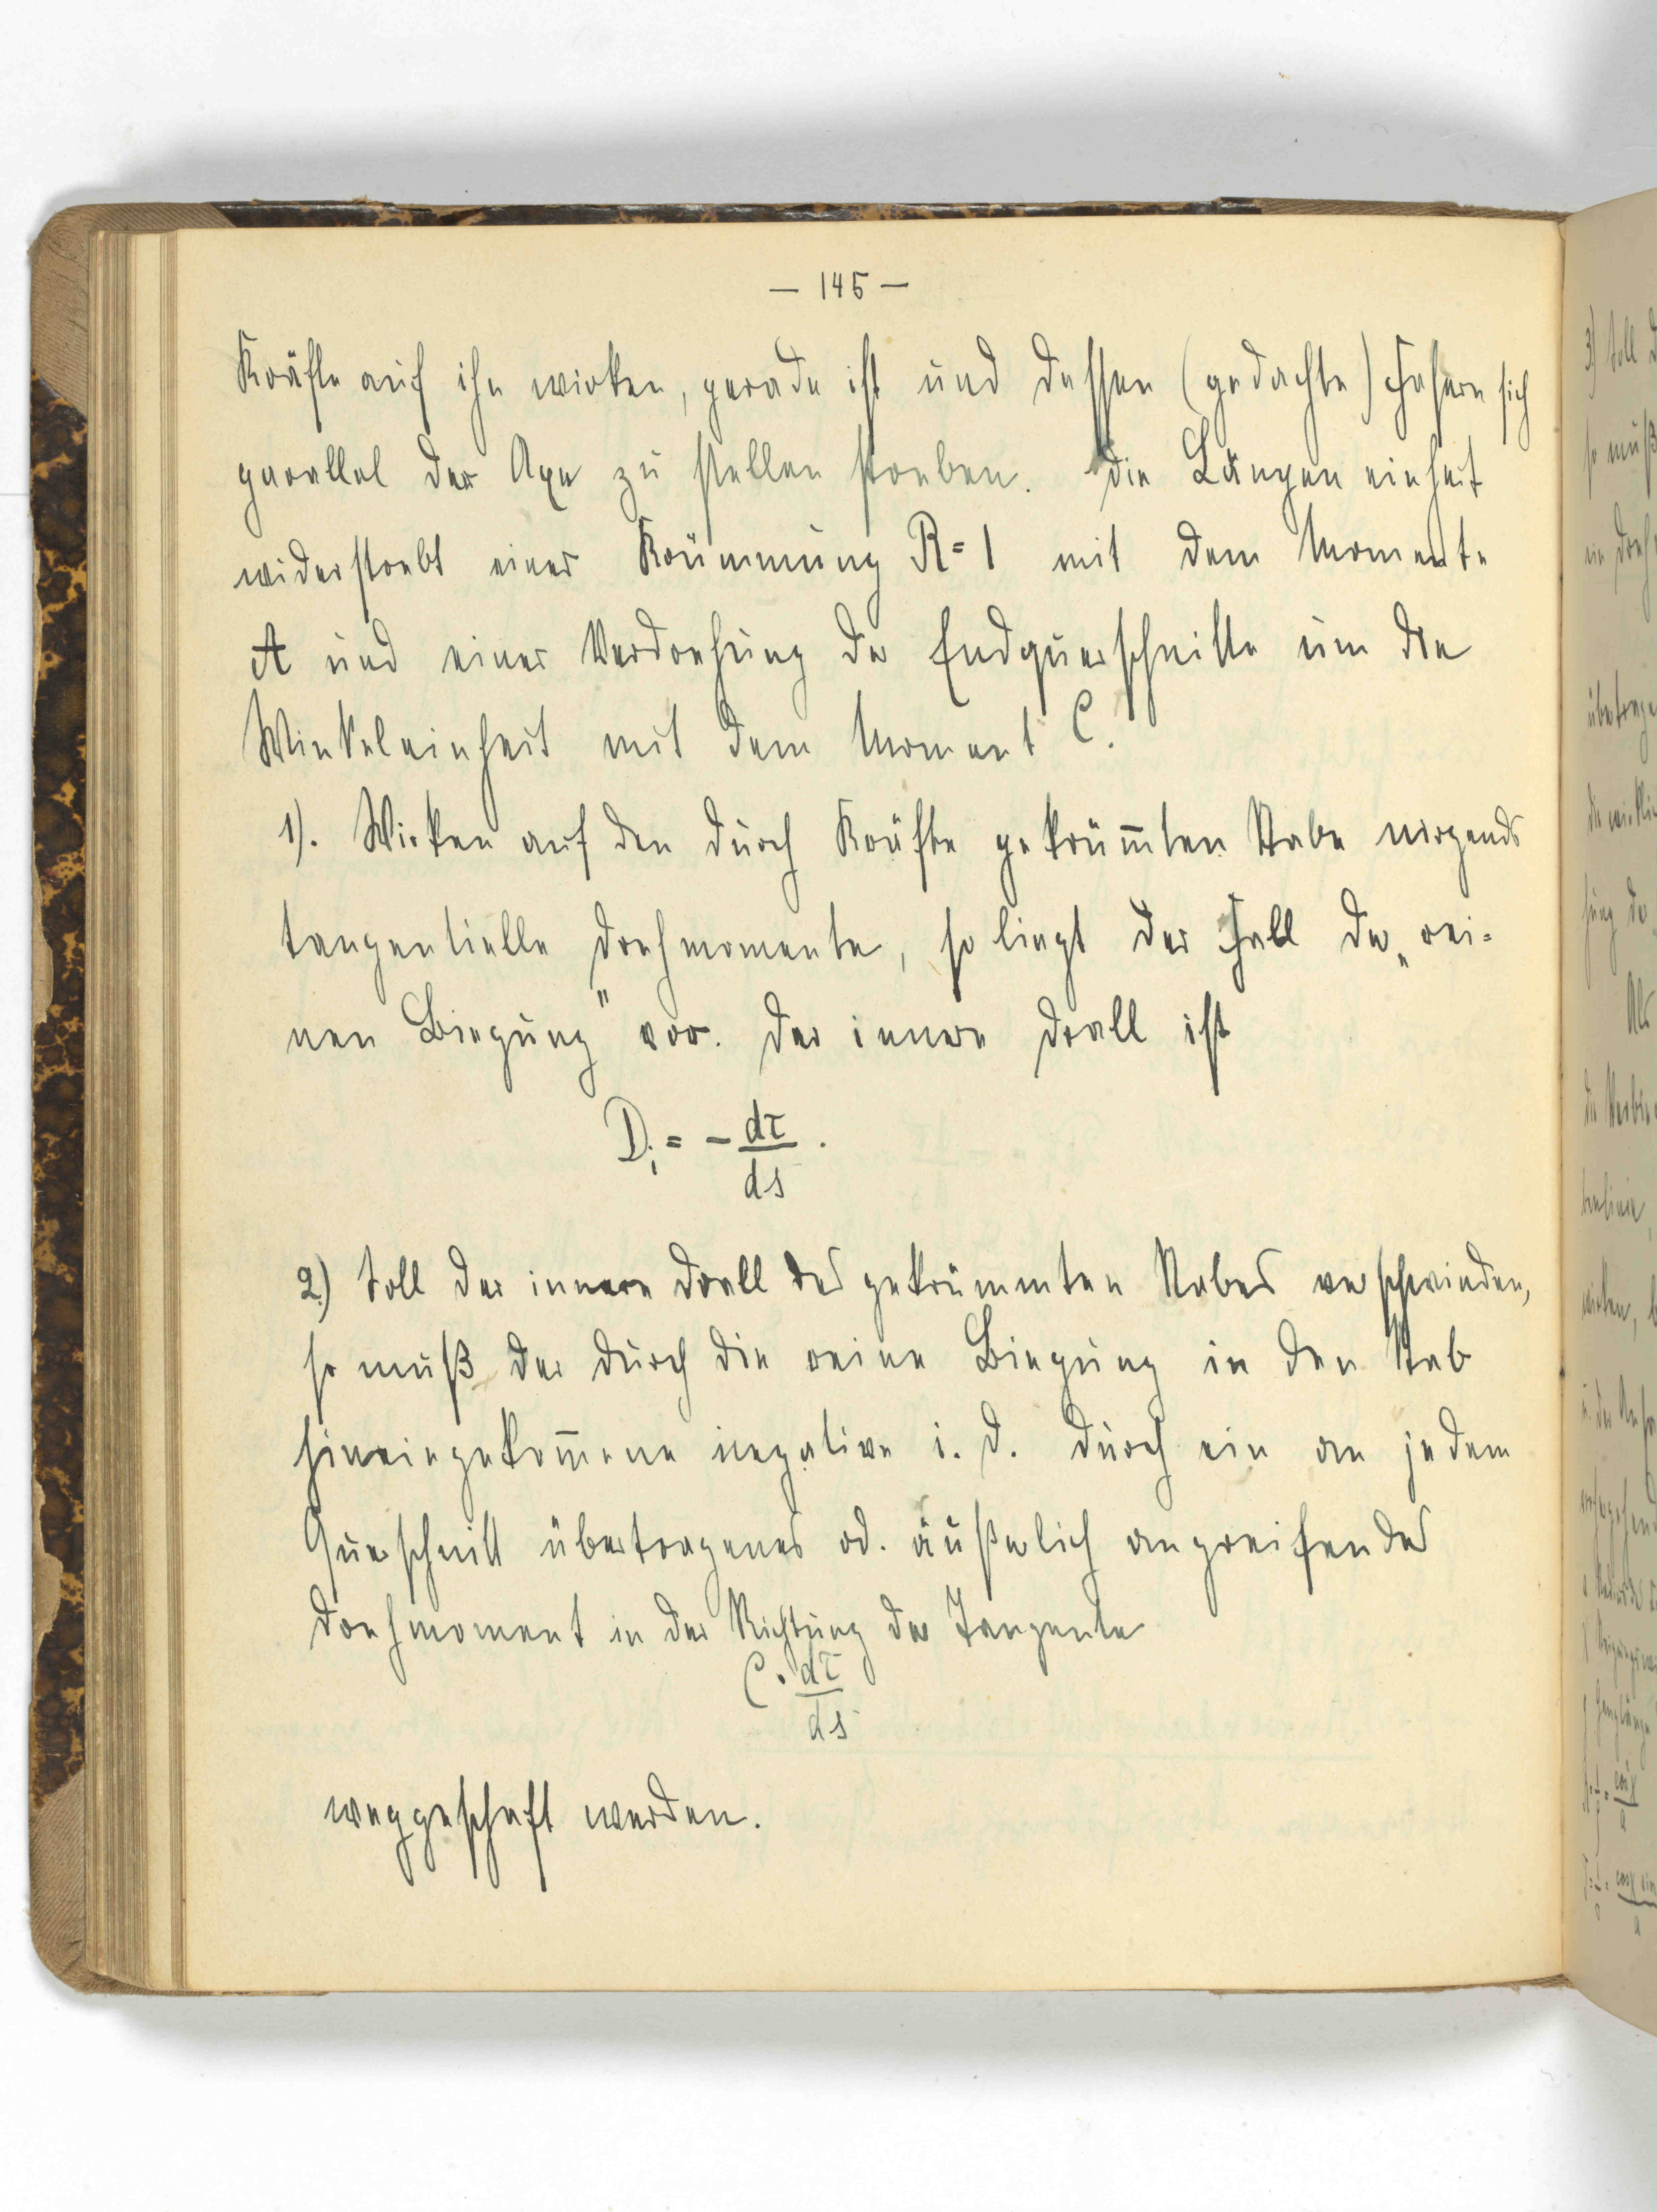 — 145 —
Kräfte auf ihn wirken, gerade ist und dessen (gedachte) Fasern sich
parallel der Axe zu stellen streben. Die Längeneinheit
widerstrebt einer Krümmung R=1 mit dem Momente
A und einer Verdrehung der Endquerschnitte um die
Winkeleinheit mit dem Moment C.
1). Wirken auf den durch Kräfte gekrüm̄ten Stabe nirgends
tangentielle Drehmomente, so liegt der Fall der „rei=
nen Biegung" vor. Der innere Drall ist
Di = - dτ/ds .
2.) Soll der innere Drall des gekrümmten Stabes verschwinden,
so muß der durch die reine Biegung in den Stab
hineingekom̄ene negative i. D. durch ein an jedem
Querschnitt übertragenes od. äußerlich angreifendes
Drehmoment in der Richtung der Tangente
C · dτ/ds
weggeschaft werden.